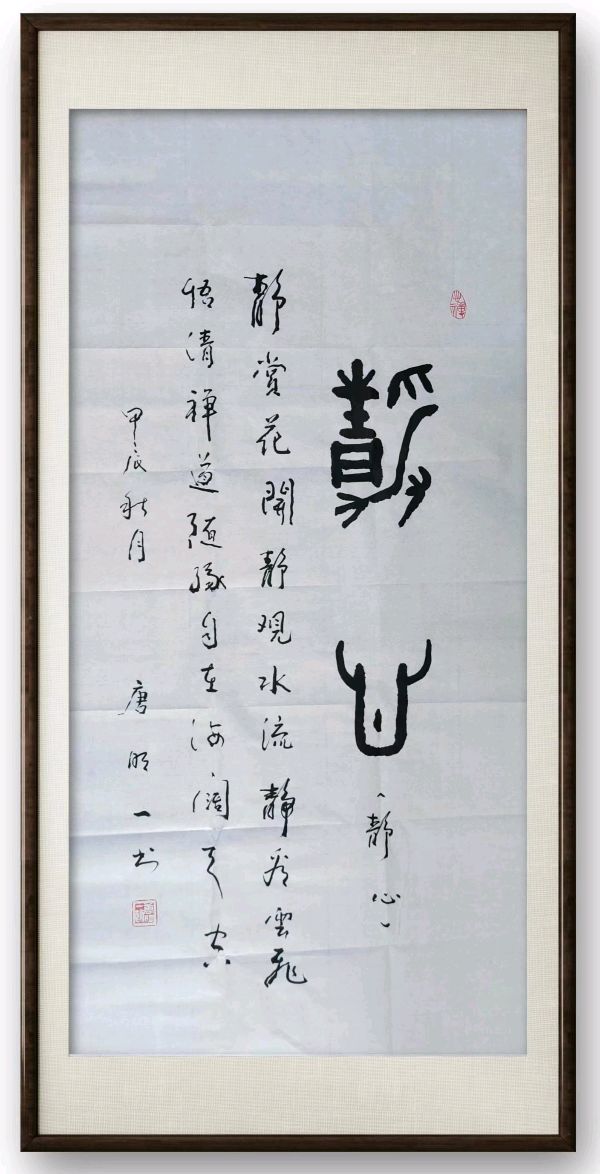 靜心
（靜心）
靜賞花開靜观水流靜看雲飛
悟清禅道随缘自在海阔天空
甲辰秋月
唐明一书